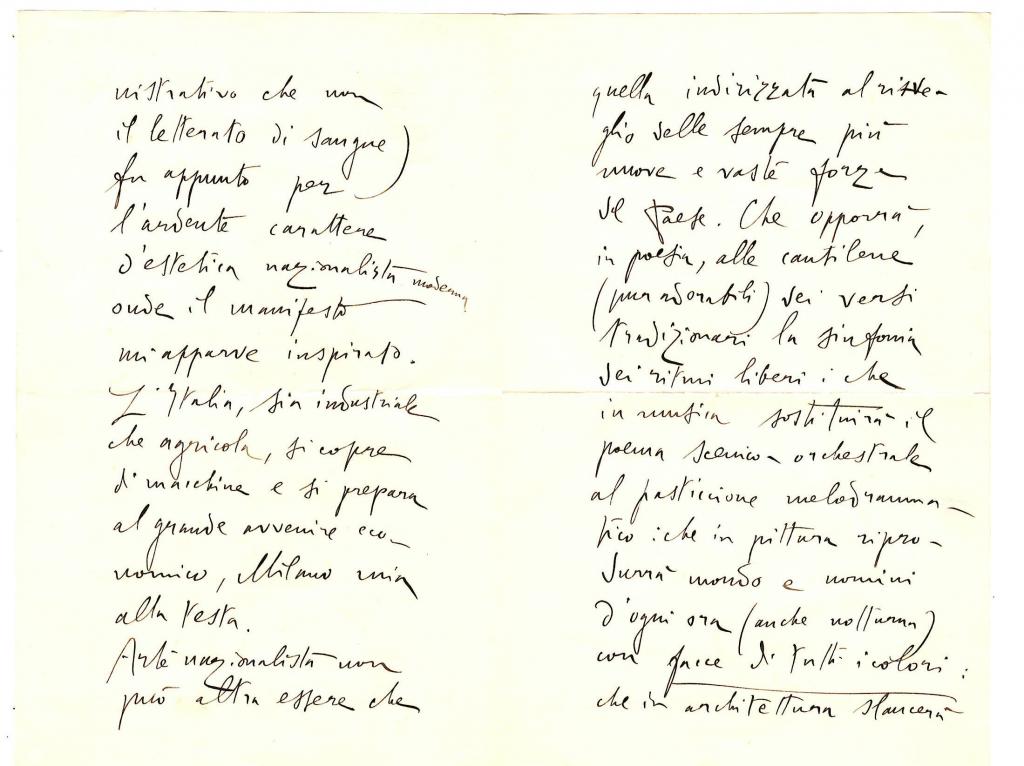 nistrativo che non
il letterato di sangue)
fu appunto per
l'ardente carattere
d'estetica nazionalista moderna
onde il manifesto
mi apparve inspirato.
L'Italia, sia industriale
che agricola, si copre
di macchine e si prepara
al grande avvenire eco-
nomico, Milano mia
alla testa.
Arte nazionalista non
può altra essere che
quella indirizzata al risve-
glio delle sempre più
nuove e vaste forze
del Paese. Che opporrà,
in poesia, alle cantilene
(pur adorabili) dei versi
tradizionari la sinfonia
dei ritmi liberi; che
in musica sostituirà il
poema scenico-orchestrale
al pasticcione melodramma-
tico; che in pittura ripro-
durrà mondo e uomini
d'ogni ora (anche notturna)
con facce di tutti i colori:
che in architettura slancerà